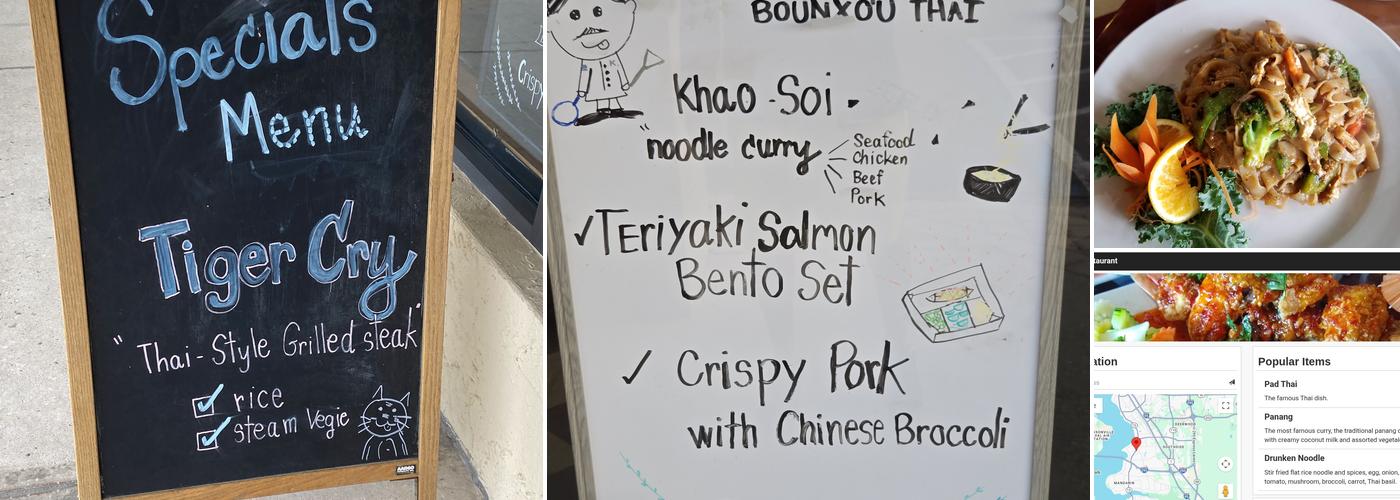 Specials
Menu
Tiger Cry
"Thai-Style Grilled steak"
rice
steam Vegie
Crispy
BOUNXOU THAI
Khao-Soi
"noodle curry
Seafood
Chicken
Beef
Pork
Teriyaki Salmon
Bento Set
Crispy Pork
with Chinese Broccoli
taurant
ation
Popular Items
Pad Thai
The famous Thai dish.
Panang
The most famous curry, the traditional panang c
with creamy coconut milk and assorted vegetal
Drunken Noodle
Stir fried flat rice noodle and spices, egg, onion,
tomato, mushroom, broccoli, carrot, Thai basil
MANDARIN